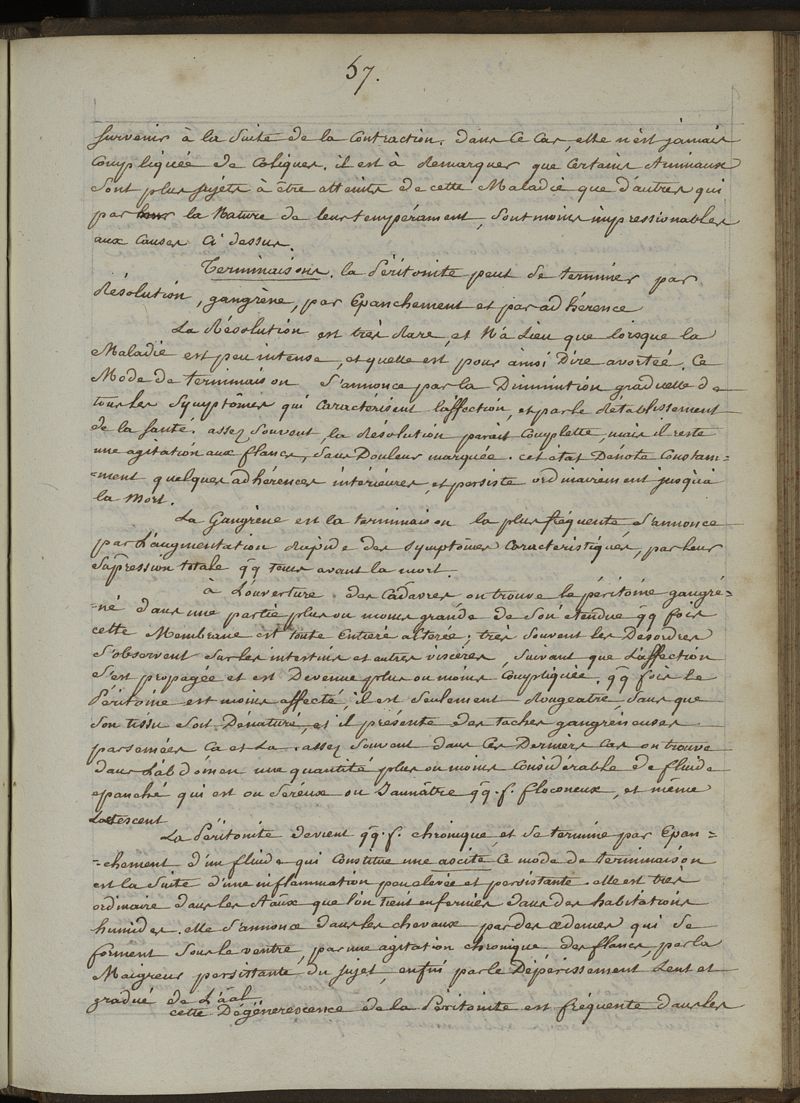 57.
survenir à la Suite de la Contraction. dans Ce Cas, elle n'est jamais
Compliquée de Coliques. il est à Remarquer que Certains Animaux
Sont plus sujéts à être atteints de cette Maladie que d'autres qui
par la Nature de leur tempérament, sont moins impressionables
aux Causes Ci dessus.
Terminaisons. la Péritonite peut se terminer par
Résolution, gangrène, par Epanchement et par adhérence
La Résolution est très Rare, et N'a Lieu que lorsque la
Maladie est peu intense, et quelle est pour ainsi Dire avortée. Ce
Mode de terminaison S'annonce par la Diminution graduelle de
tous les Symptômes qui Caractérisent l'affection, et par le Rétablissement
de la santé. assez Souvent, la Résolution parait Complette, mais il reste
une agitation aux flancs, Sans Douleur marquée. cet état Dénote Constam=
=ment quelques adhérences intérieures, et persiste ordinairement jusqu'à
la Mort.
La Gangrène est la terminaison la plus fréquente S'annonce
par L'augmentation Rapide des symptômes Caracteristiques, par leur
Sapression totale qq tems avant la mort.
à Louverture des Cadavres on trouve le péritoine gangré=
=né dans une partie plus ou moins grande de Son étendue qq fois
cette Membrane est toute Entière altérée; très Souvent les Désordres
S'observent Sur les intestins et autres viscères, Suivant que L'affection
S'est propagée et est Devenue plus ou moins Compliquée. qq fois le
Péritoine est moins affecté, il est Seulement Rougeatre, Sans que
Son tissu Soit Dénaturé, et il présente des taches gangréneuses
parsemées Ca et La. assez Souvent dans Ces Derniers Cas on trouve
dans L'abdomen une quantité plus ou moins Considérable de fluide
epanché qui est ou Séreux ou Jaunâtre qq. f. floconeux, et même
Latescent
La Péritonite devient qq. f. chronique, et Se termine par Epan=
=chement d'un fluide qui Constitue une ascite Ce mode de terminaison
est la Suite d'une inflammation peu elevée et persistante. elle est tres
ordinaire dans les Aaux que l'on tient enfermés dans des habitations
humides. elle S'annonce dans les chevaux par des œdemes qui Se
forment Sous le ventre, par une agitation chronique des flancs, par la
Maigreur persistante du Sujet, enfin par le Dépérissement Lent et
gradué de L'aal
cette Dégénerescence de la Péritonite est fréquente dans les